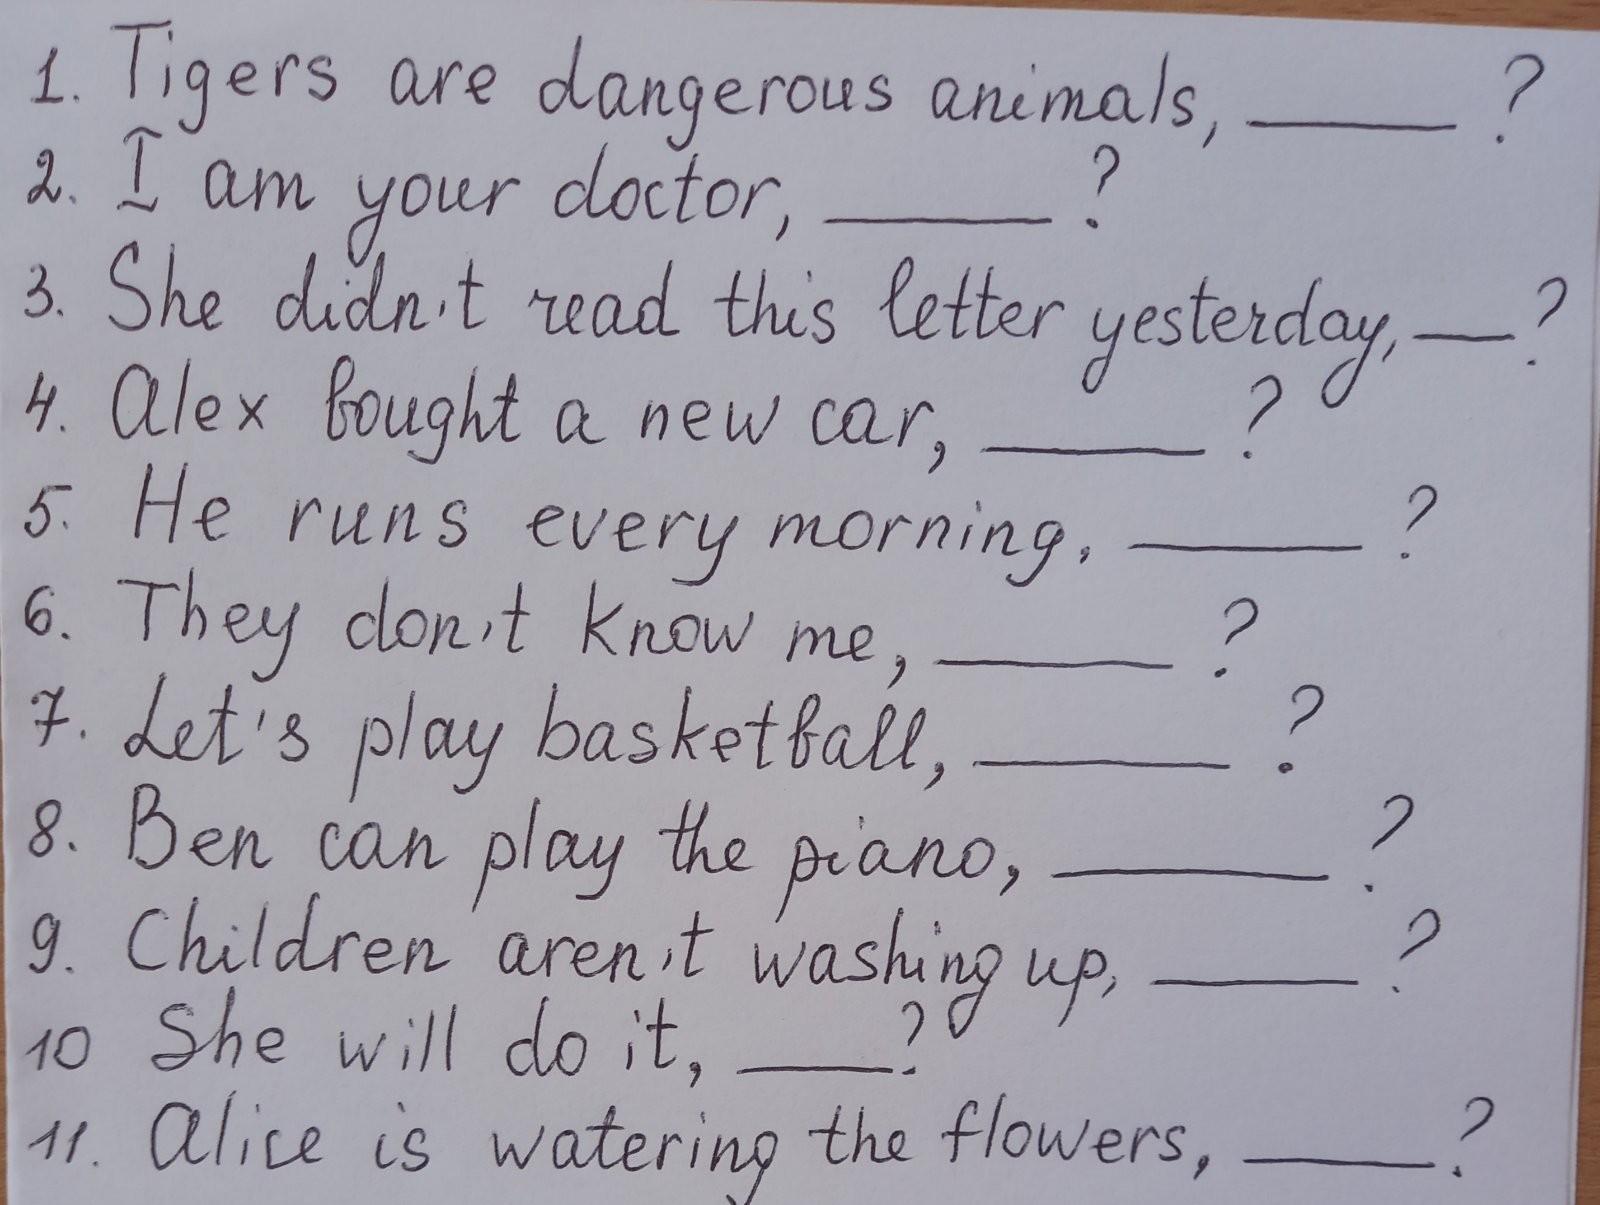 1. Tigers are dangerous animals, _____ ?
2. I am your doctor, _____ ?
3. She didn't read this letter yesterday, __ ?
4. Alex bought a new car, _____ ?
5. He runs every morning, _____ ?
6. They don't know me, _____ ?
7. Let's play basketball, _____ ?
8. Ben can play the piano, _____ ?
9. Children aren't washing up, _____ ?
10 She will do it, ____?
11. Alice is watering the flowers, _____?